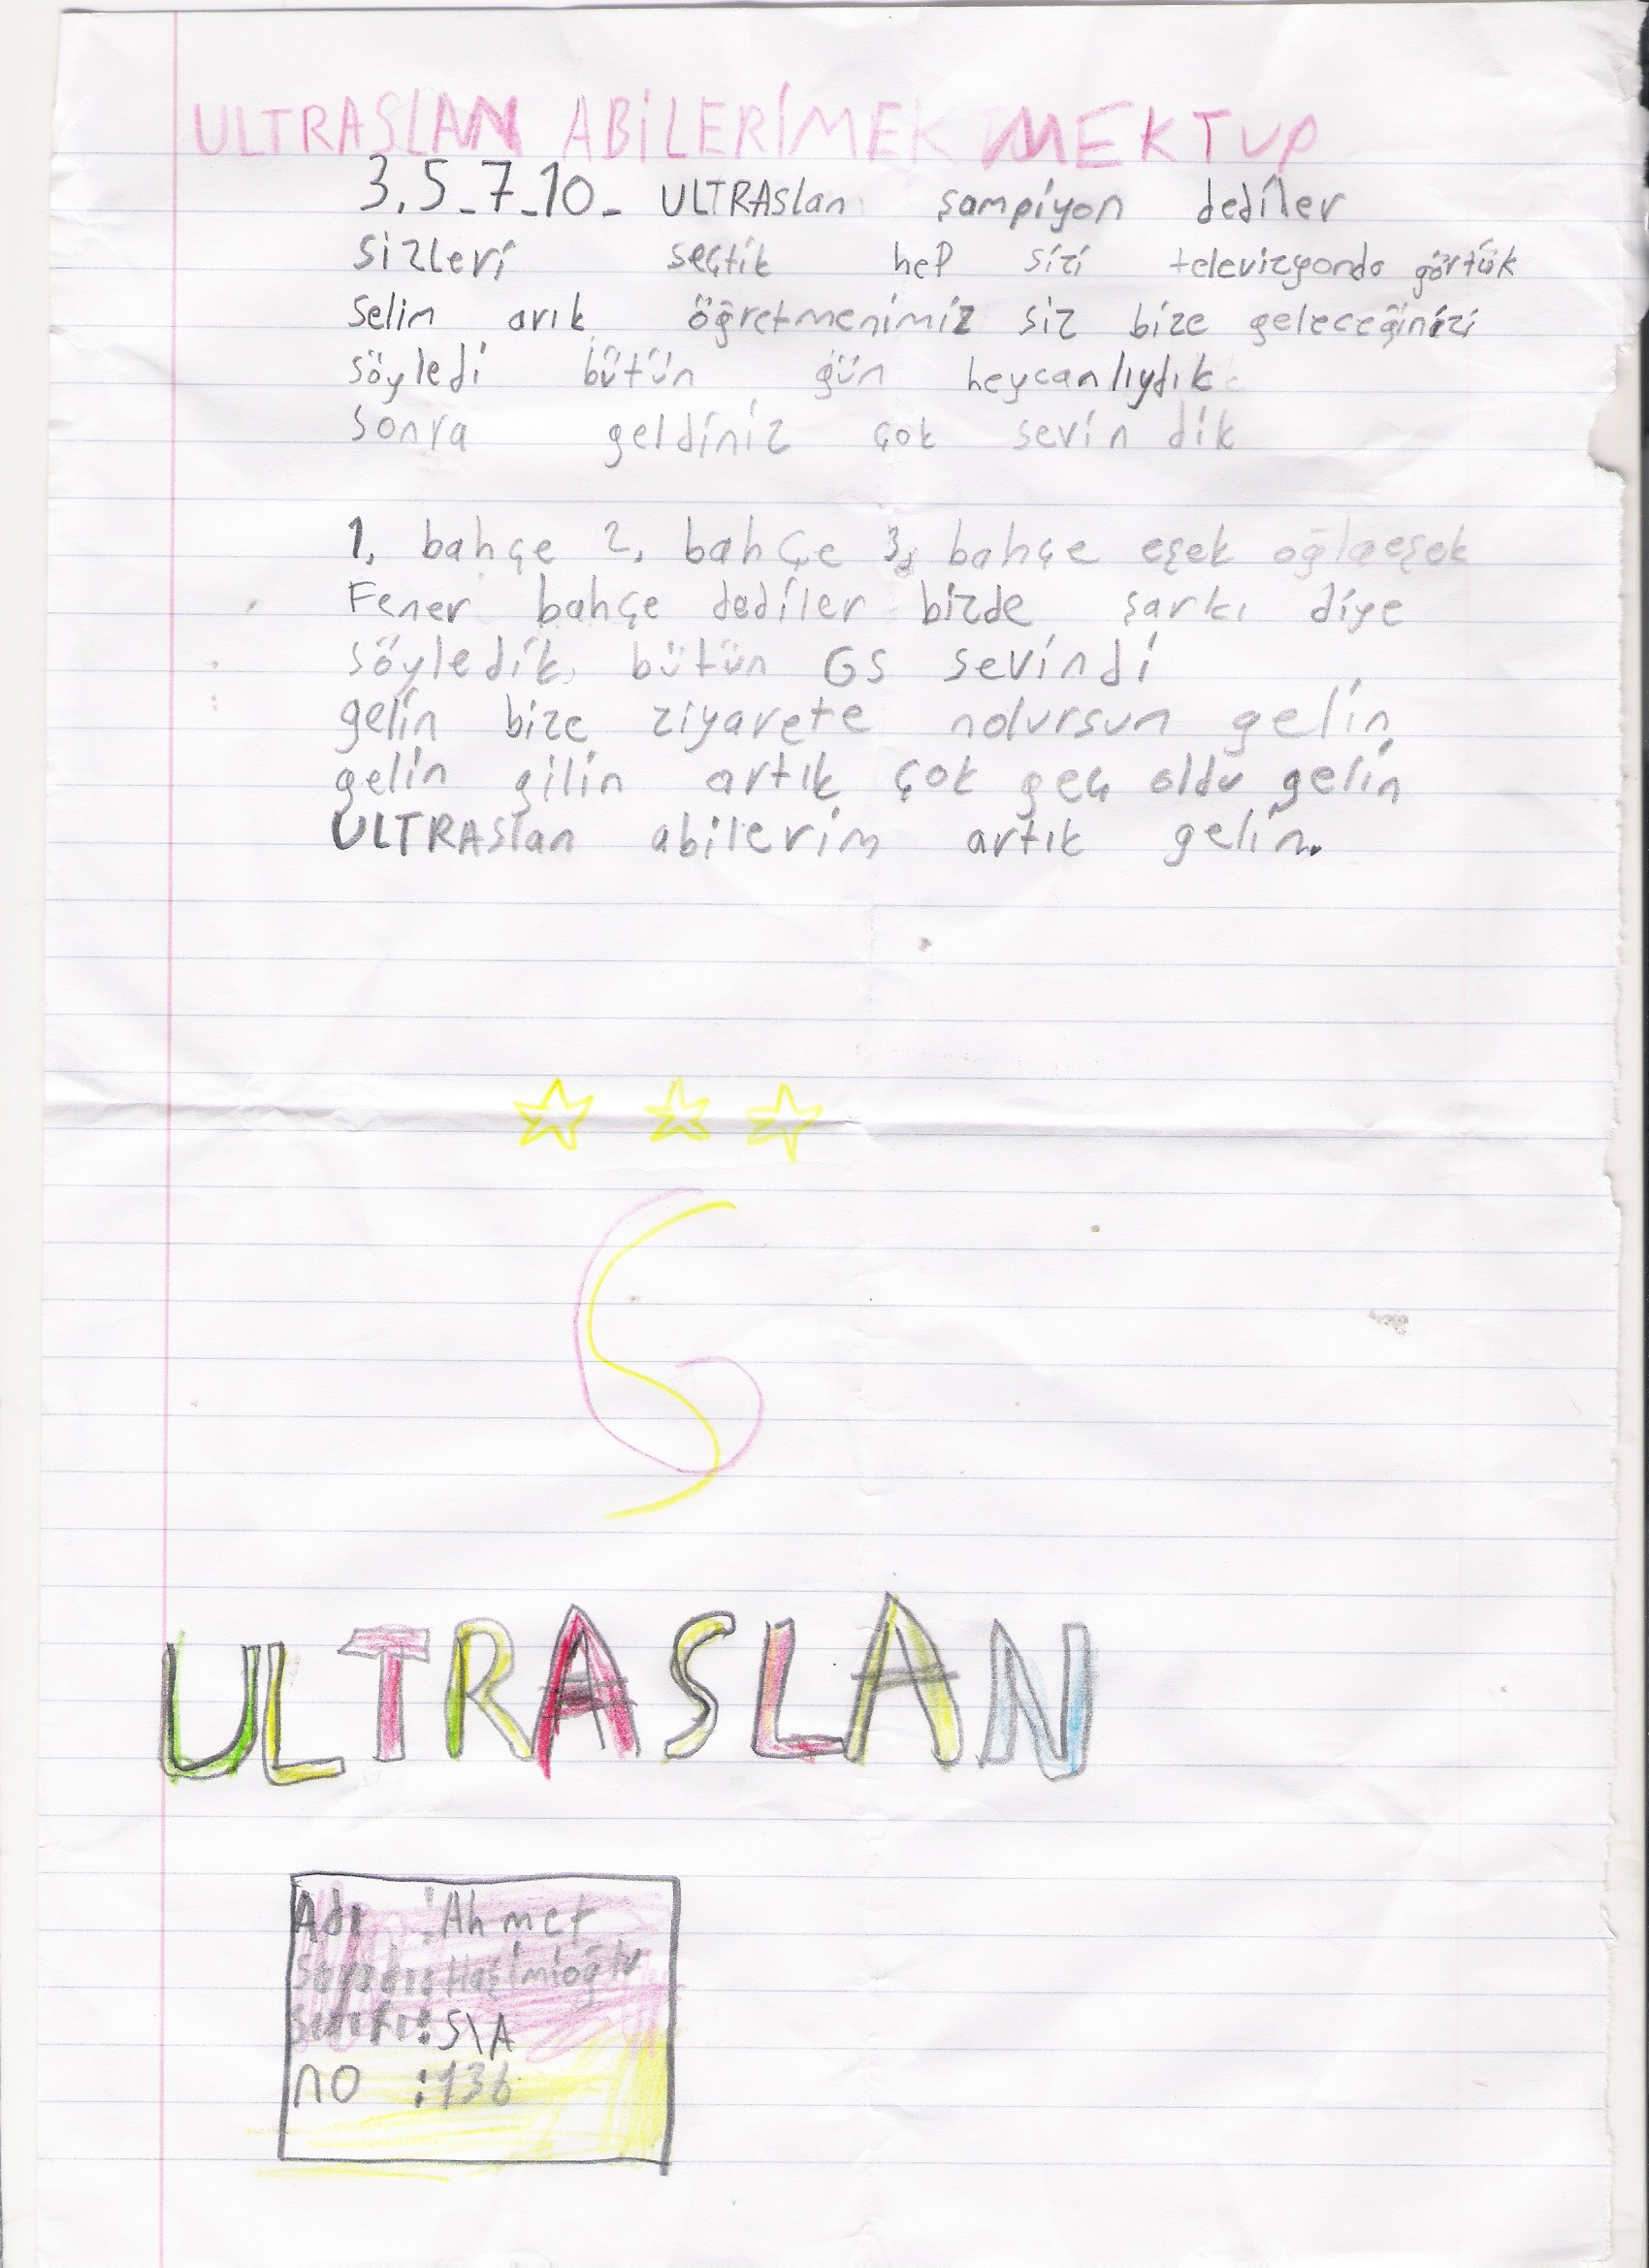 ULTRASLAN ABİLERİMEK MEKTUP
3.5-7-10- ULTRASlan şampiyon dediler
Sizleri seçtik hep sizi televizyonda görtük
Selin arık öğretmenimiz siz bize geleceğinizi
söyledi bütün gün heycanlıydık
sonra geldiniz çok sevin dik
1. bahçe 2. bahçe 3. bahçe eşek oğlaeşek
Fener bahçe dediler bizde şarkı diye
söyledik, bütün GS sevindi
gelin bize ziyarete nolursun gelin
gelin gilin artık çok geç oldu gelin
ULTRASlan abilerim artık gelin.
ULTRASLAN
Adı :Ahmet
Soyadı: Haşimioğlu
Sınıfı:5\A
no :136